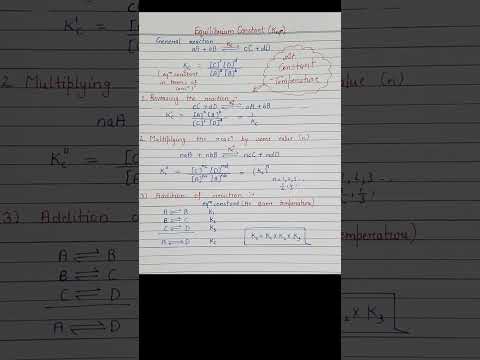 Equilibrium Constant (Keq)
General reaction
aA + bB ⇌ cC + dD
Kc
Kc = [C]^c [D]^d / [A]^a [B]^b
(eqm constant in terms of concn)
at Constant Temperature
1. Reversing the reaction :-
cC + dD ⇌ aA + bB
Kc' = [A]^a [B]^b / [C]^c [D]^d = 1/Kc
2. Multiplying the reacn by some value (n)
naA + nbB ⇌ ncC + ndD
Kc" = [C]^nc [D]^nd / [A]^na [B]^nb = (Kc)^n
n = 1, 2, 3 ...
1/2, 1/3
3) Addition of reaction :-
eqm constant (at same temperature)
A ⇌ B K1
B ⇌ C K2
C ⇌ D K3
A ⇌ D Kc
Kc = K1 x K2 x K3
2 Multiplying
naA
Kc" =
3) Addition o
A ⇌ B
B ⇌ C
C ⇌ D
A ⇌ D
emperature)
x K3